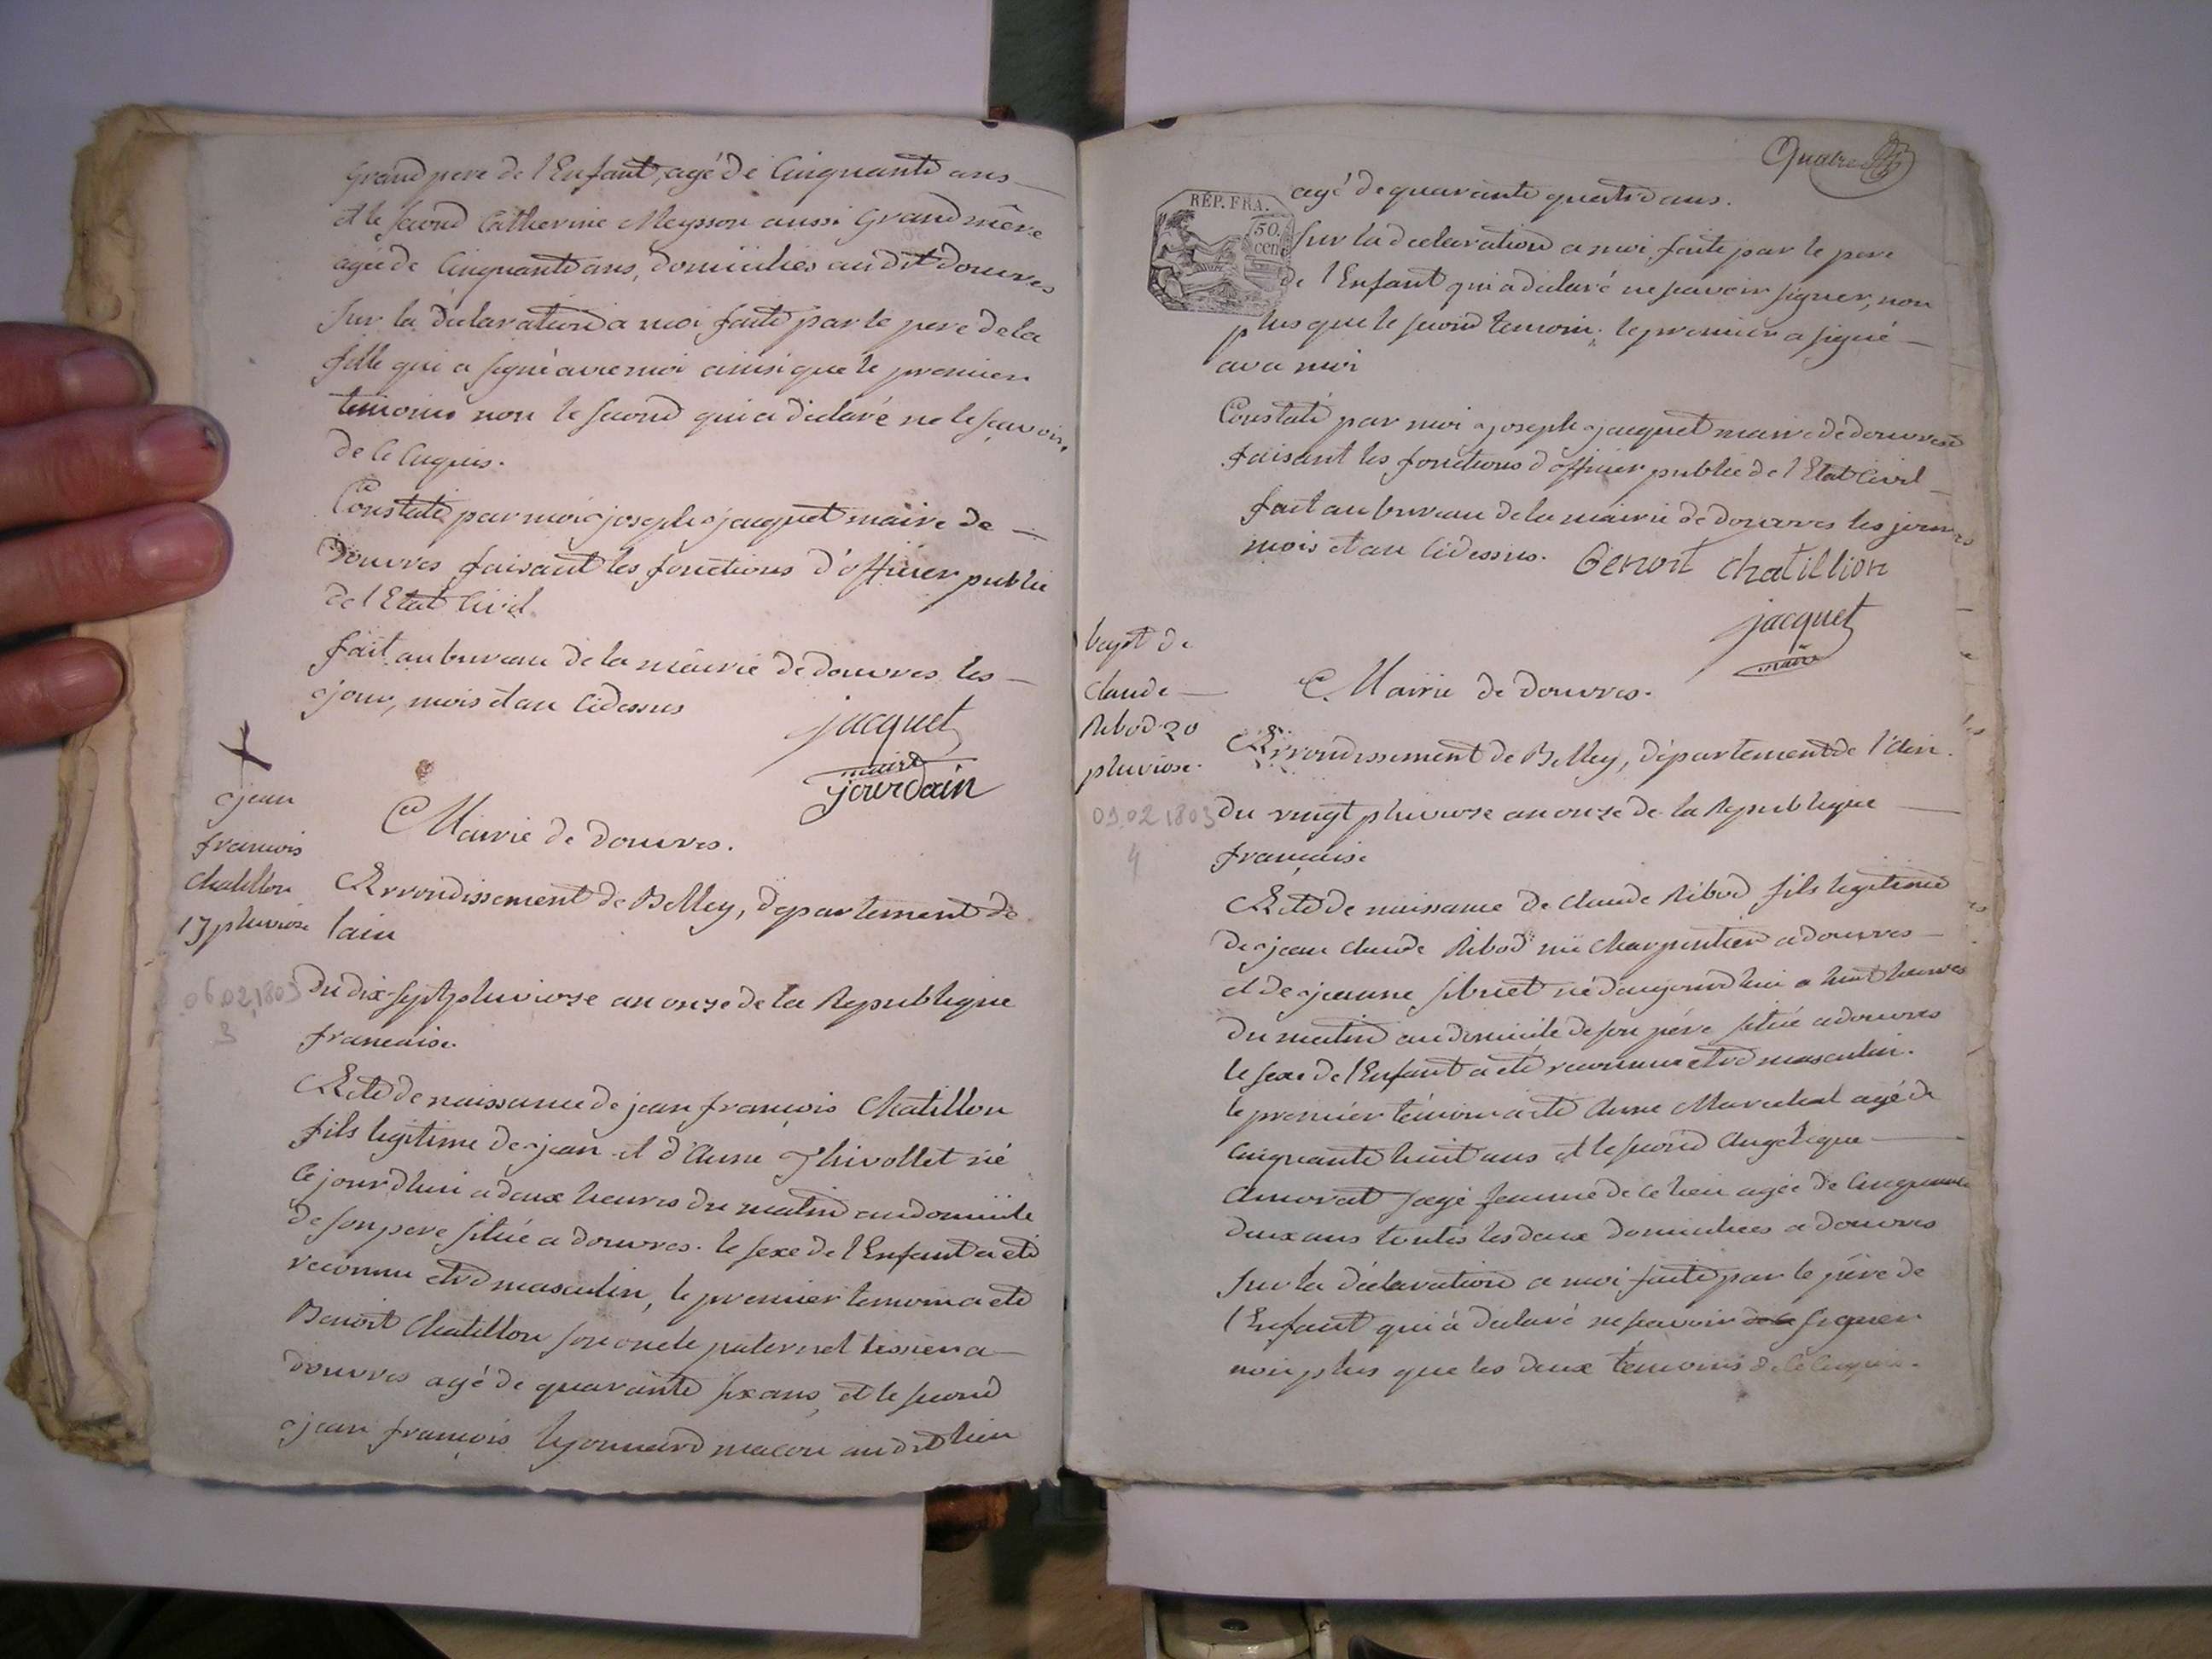 grand pere de l'Enfant, agé de Cinquante ans
et le second Catherine Meysson aussi Grand mère
agée de Cinquante ans, domiciliés au dit douvres
sur la déclaration a moi faite par le pere de la
fille qui a signé avec moi ainsi que le premier
temoin non le second qui a déclaré ne le sçavoir,
de ce enquis.
Constaté par moi joseph jacquet maire de
Douvres faisant les fonctions d'officier public
de l'Etat Civil
fait au bureau de la mairie de douvres les
jour, mois et an Cidessus
jacquet
maire
jourdain
jean
francois
chatillon
17 pluviose
06.02.1803
3
Mairie de Douvres.
Arrondissement de Belley, département de
lain
Du dix-sept pluviose an onze de la Republique
francaise.
Acte de naissance de jean françois Chatillon
fils legitime de jean et d'Anne Thivollet né
Ce jourd'hui a deux heures du matin au domicile
de son pere situé a douvres. le sexe de l'Enfant a eté
reconnu etre masculin, le premier temoin a eté
Benoit Chatillon son oncle paternel tissier a
douvres agé de quarante six ans, et le second
jean françois Lyonnard macon au dit lieu
Quatre
RÉP. FRA.
50.
cent
agé de quarante quatre ans.
Sur la declaration a moi faite par le pere
de l'Enfant qui a déclaré ne scavoir signer, non
plus que le second temoin. le premier a signé
avec moi
Constaté par moi joseph jacquet maire de douvres
faisant les fonctions d'officier public de l'Etat Civil
fait au bureau de la mairie de douvres les jour
mois et an Cidessus. Benoit chatillion
jacquet
maire
bapt de
Claude
Ribod 20
pluviose.
09.02.1803
4
Mairie de Douvres.
Arrondissement de Belley, département de l'Ain.
Du vingt pluviose an onze de la Republique
française
Acte de naissance de Claude Ribod fils legitime
de jean claude Ribod Charpentier a douvres
et de jeanne sibuet né d'aujourd'hui a huit heures
du matin au domicile de son pére situé a douvres
le sexe de l'Enfant a eté reconnu etre masculin.
le premier témoin a eté Anne Marechal agé de
Cinquante huit ans et le second Angelique
Amorat sage femme de ce lieu agée de Cinquante
deux ans toutes les deux domiciliees a douvres
Sur la déclaration a moi faite par le pére de
l'Enfant qui à déclaré ne scavoir signer
non plus que les deux temoins de ce enquis.